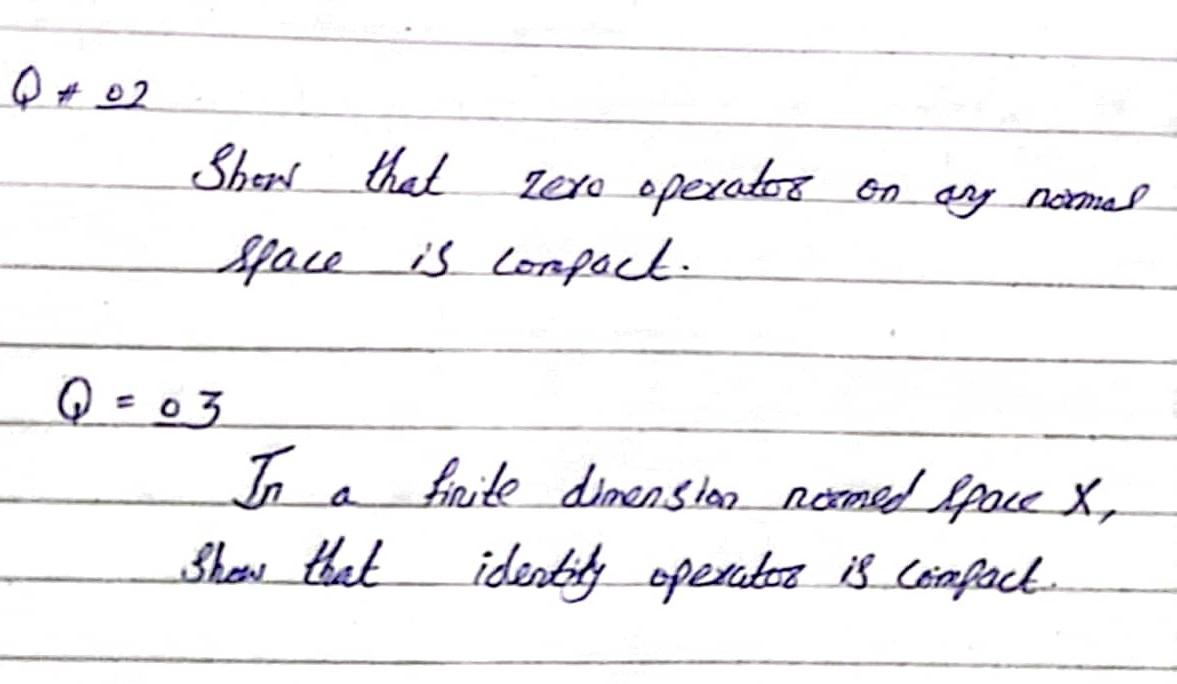 Q # 02
Show that zero operator on any normal
space is compact.
Q = 03
In a finite dimension normed space X,
show that identity operator is compact.